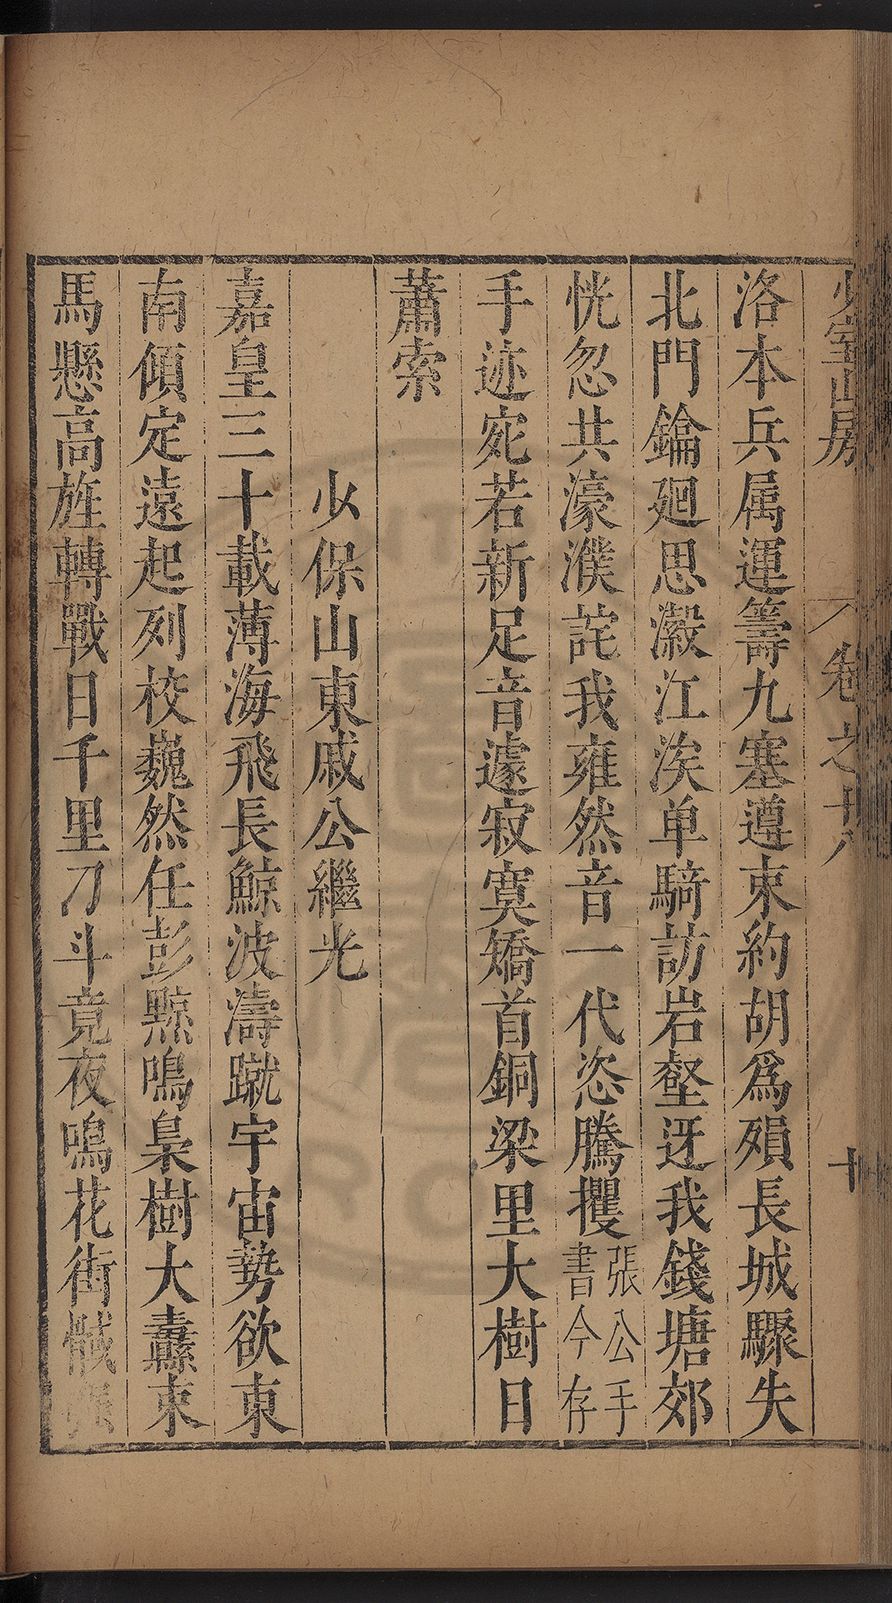 少室山房 卷之十八 十
洛本兵属運籌九塞遵束約胡為殞長城驟失
北門鑰廻思瀫江涘单騎訪岩壑迓我錢塘郊
恍忽共濠濮詫我雍然音一代恣騰攫張公手書今存
手迹宛若新足音遽寂寞矯首銅梁里大樹日
蕭索
少保山東戚公繼光
嘉皇三十載薄海飛長鯨波濤蹴宇宙勢欲東
南傾定遠起列校巍然任彭黥鳴梟樹大纛束
馬懸高旌轉戰日千里刀斗竟夜鳴花街馘